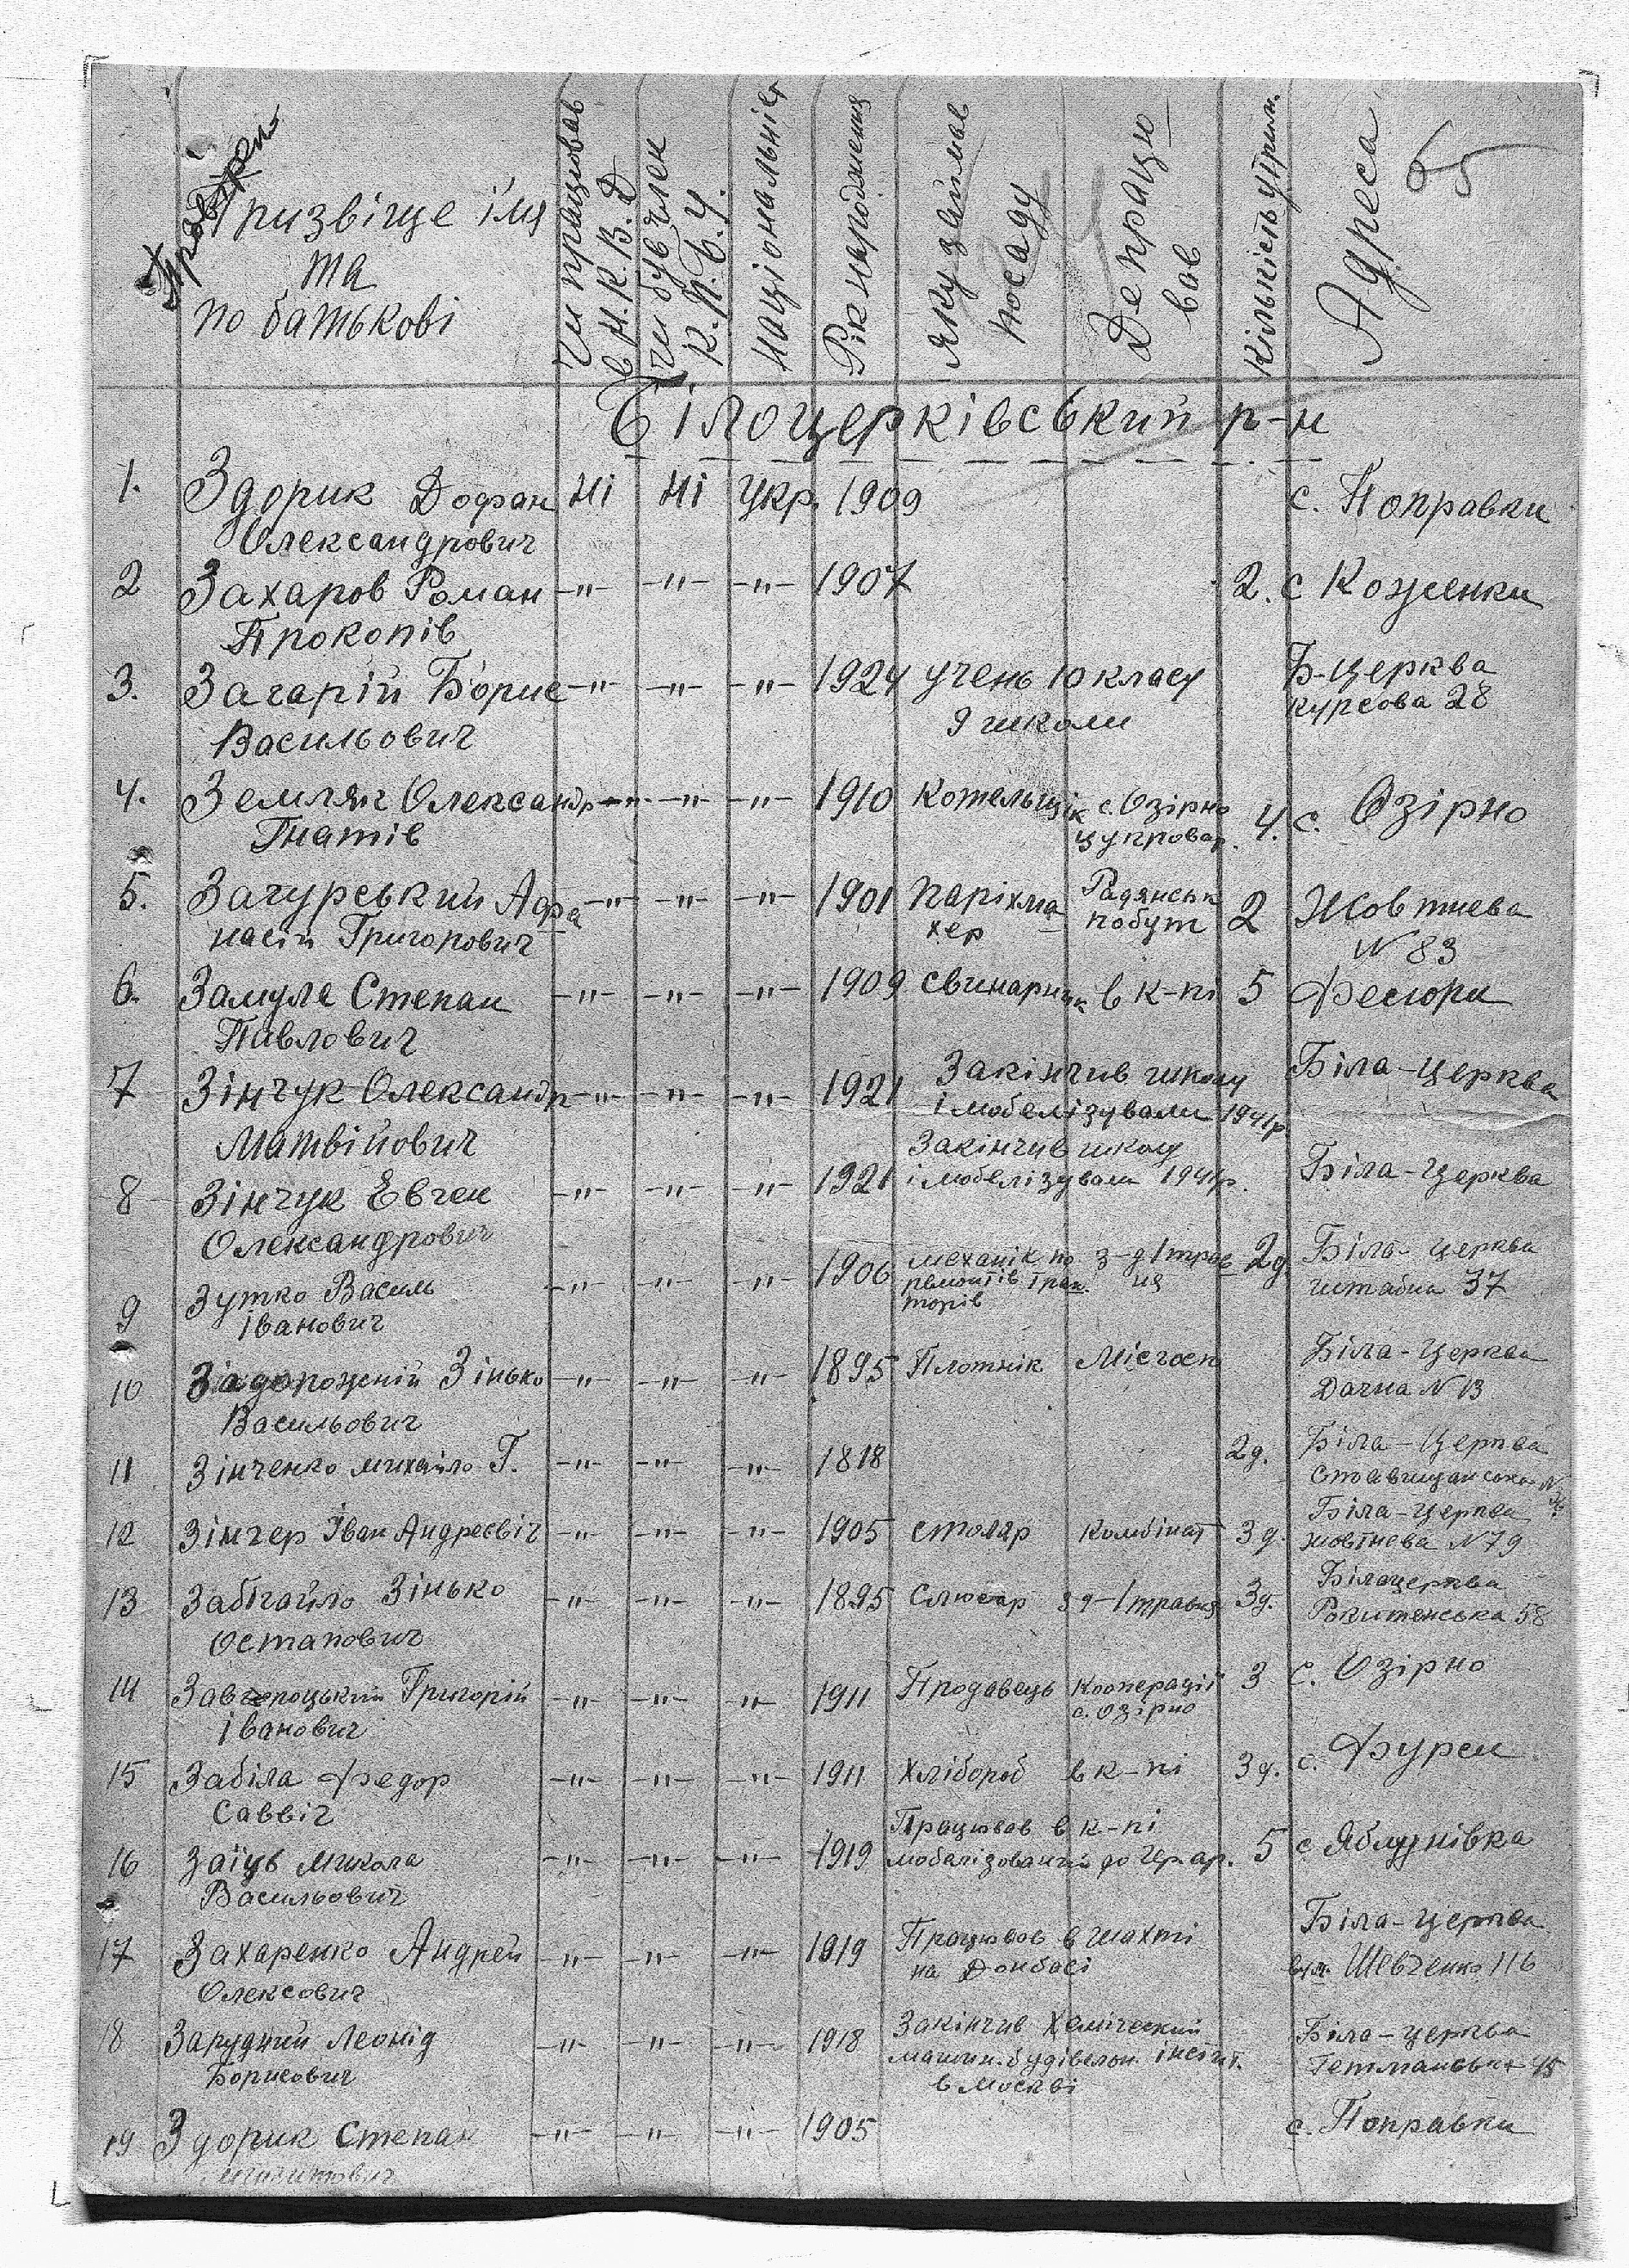 Призвіще імя та по батькові | Чи працював в Н.К.В.Д | Чи був член К.П.б.У. | Національніст | Рік народження | Яку займає посаду | Де працював | Кількість утрим. | Адреса | 65
Білоцерківський р-н
1. Здорик Дофан Ні Ні Укр. 1909 с. Поправки
Олександрович
2 Захаров Роман -"- -"- -"- 1907 2. с Коженки
Прокопів
3. Загарій Борис -"- -"- -"- 1924 учень 10 класу Б-Церква
Васильович 9 школи Курсова 28
4. Земляк Олександр -"- -"- -"- 1910 Котельщік с. Озірно 4. с. Озірно
Гнатів цукровар.
5. Загурський Афа -"- -"- -"- 1901 паріхма Радянськ 2 Жовтнева
насій Григорович хер побут N 83
6. Замула Степан -"- -"- -"- 1909 свинарник в к-пі 5 Фесюри
Павлович
7 Зінчук Олександр -"- -"- -"- 1921 Закінчив школу Біла-Церква
Матвійович і мобелізували 1941р
8 Зінчук Евген -"- -"- -"- 1921 Закінчив школу Біла-Церква
Олександрович і мобелізували 1941р.
9 Зутко Василь -"- -"- -"- 1906 механік по з-д 1 трав 2д Біла-Церква
Іванович ремонтів трак ня штабна 37
торів
10 Задорожній Зінько -"- -"- -"- 1895 Плотнік Місгосп Біла-Церква
Васильович Дачна N 13
11 Зінченко Михайло Г. -"- -"- -"- 1818 2д. Біла-Церква
Ставищанська
12 Зінчер Іван Андреєвіч -"- -"- -"- 1905 столяр Комбінат 3д. Біла-Церква
жовтнева N 79
13 Забігайло Зінько -"- -"- -"- 1895 Слюсар з д-1 травня 3д. Білацерква
Остапович Рокитенська 58
14 Завгороцький Григорій -"- -"- -"- 1911 Продавець Кооперації 3 с. Озірно
Іванович с. Озірно
15 Забіла Федор -"- -"- -"- 1911 Хлібороб в к-пі 3д. с. Фурси
Саввіч
16 Заїць Микола -"- -"- -"- 1919 Працював в к-пі 5 с Яблунівка
Васильович мобалізований до Чер ар.
17 Захаренко Андрей -"- -"- -"- 1919 Працював в шахті Біла-Церква
Олексович на Донбасі вул. Шевченко 116
18 Зарудний Леонід -"- -"- -"- 1918 Закінчив Хемический Біла-Церква
Борисович машин.будівельн. інсігт. Гетманська 45
в Москві
19 Здорик Степан -"- -"- -"- 1905 с. Поправки